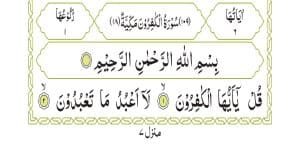 اٰیَاتُهَا ٦
(١٠٩) سُوْرَةُ الْكٰفِرُوْنَ مَكِّیَّةٌ (١٨)
رُكُوْعُهَا ١
بِسْمِ اللّٰهِ الرَّحْمٰنِ الرَّحِیْمِ
قُلْ یٰۤاَیُّهَا الْكٰفِرُوْنَ ١ لَاۤ اَعْبُدُ مَا تَعْبُدُوْنَ ٢
منزل ٧